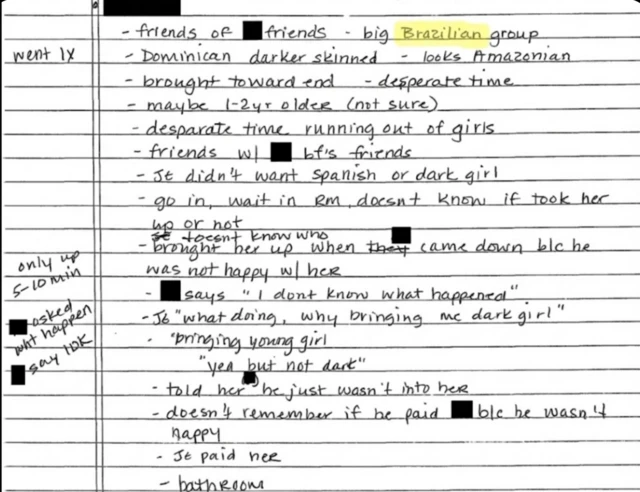 - friends of friends - big Brazilian group
went 1x
- Dominican darker skinned - looks Amazonian
- brought toward end - desperate time
- maybe 1-2yr older (not sure)
- desparate time running out of girls
- friends w/ bf's friends
- JE didn't want spanish or dark girl
- go in, wait in RM, doesnt know if took her
up or not
doesnt know who
- brought her up when they came down b/c he
was not happy w/ her
only up
5-10 min
- says "I dont know what happened"
- JE "what doing, why bringing me dark girl"
asked
wht happen
say IDK
- "bringing young girl
"yea but not dark"
- told her he just wasn't into her
- doesn't remember if he paid b/c he wasn't
happy
- JE paid her
- bathroom